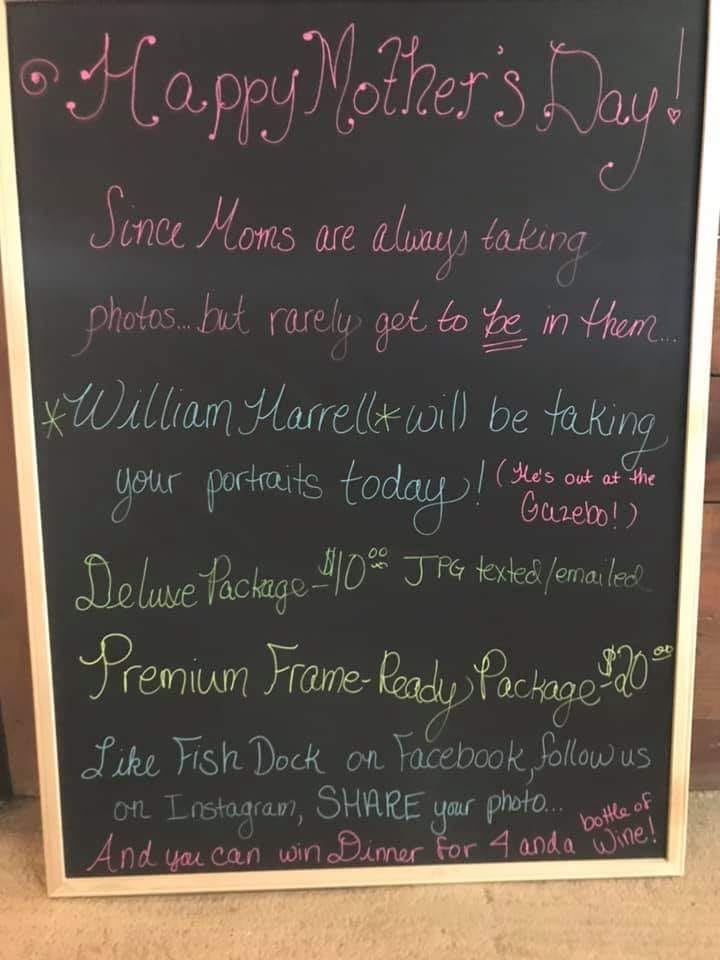 Happy Mother's Day!
Since Moms are always taking
photos... but rarely get to be in them...
*William Harrell* will be taking
your portraits today! (He's out at the
Gazebo!)
Deluxe Package - $10.00 JPG texted/emailed
Premium Frame-Ready Package - $20.00
Like Fish Dock on Facebook, follow us
on Instagram, SHARE your photo...
And you can win Dinner for 4 and a bottle of
Wine!